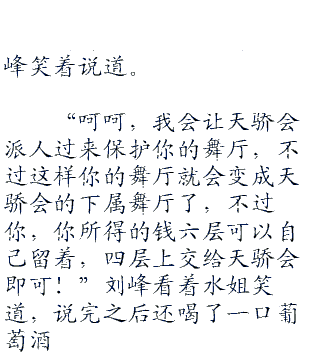 峰笑着说道。
“呵呵，我会让天骄会
派人过来保护你的舞厅，不
过这样你的舞厅就会变成天
骄会的下属舞厅了，不过
你，你所得的钱六层可以自
己留着，四层上交给天骄会
即可！”刘峰看着水姐笑
道，说完之后还喝了一口葡
萄酒